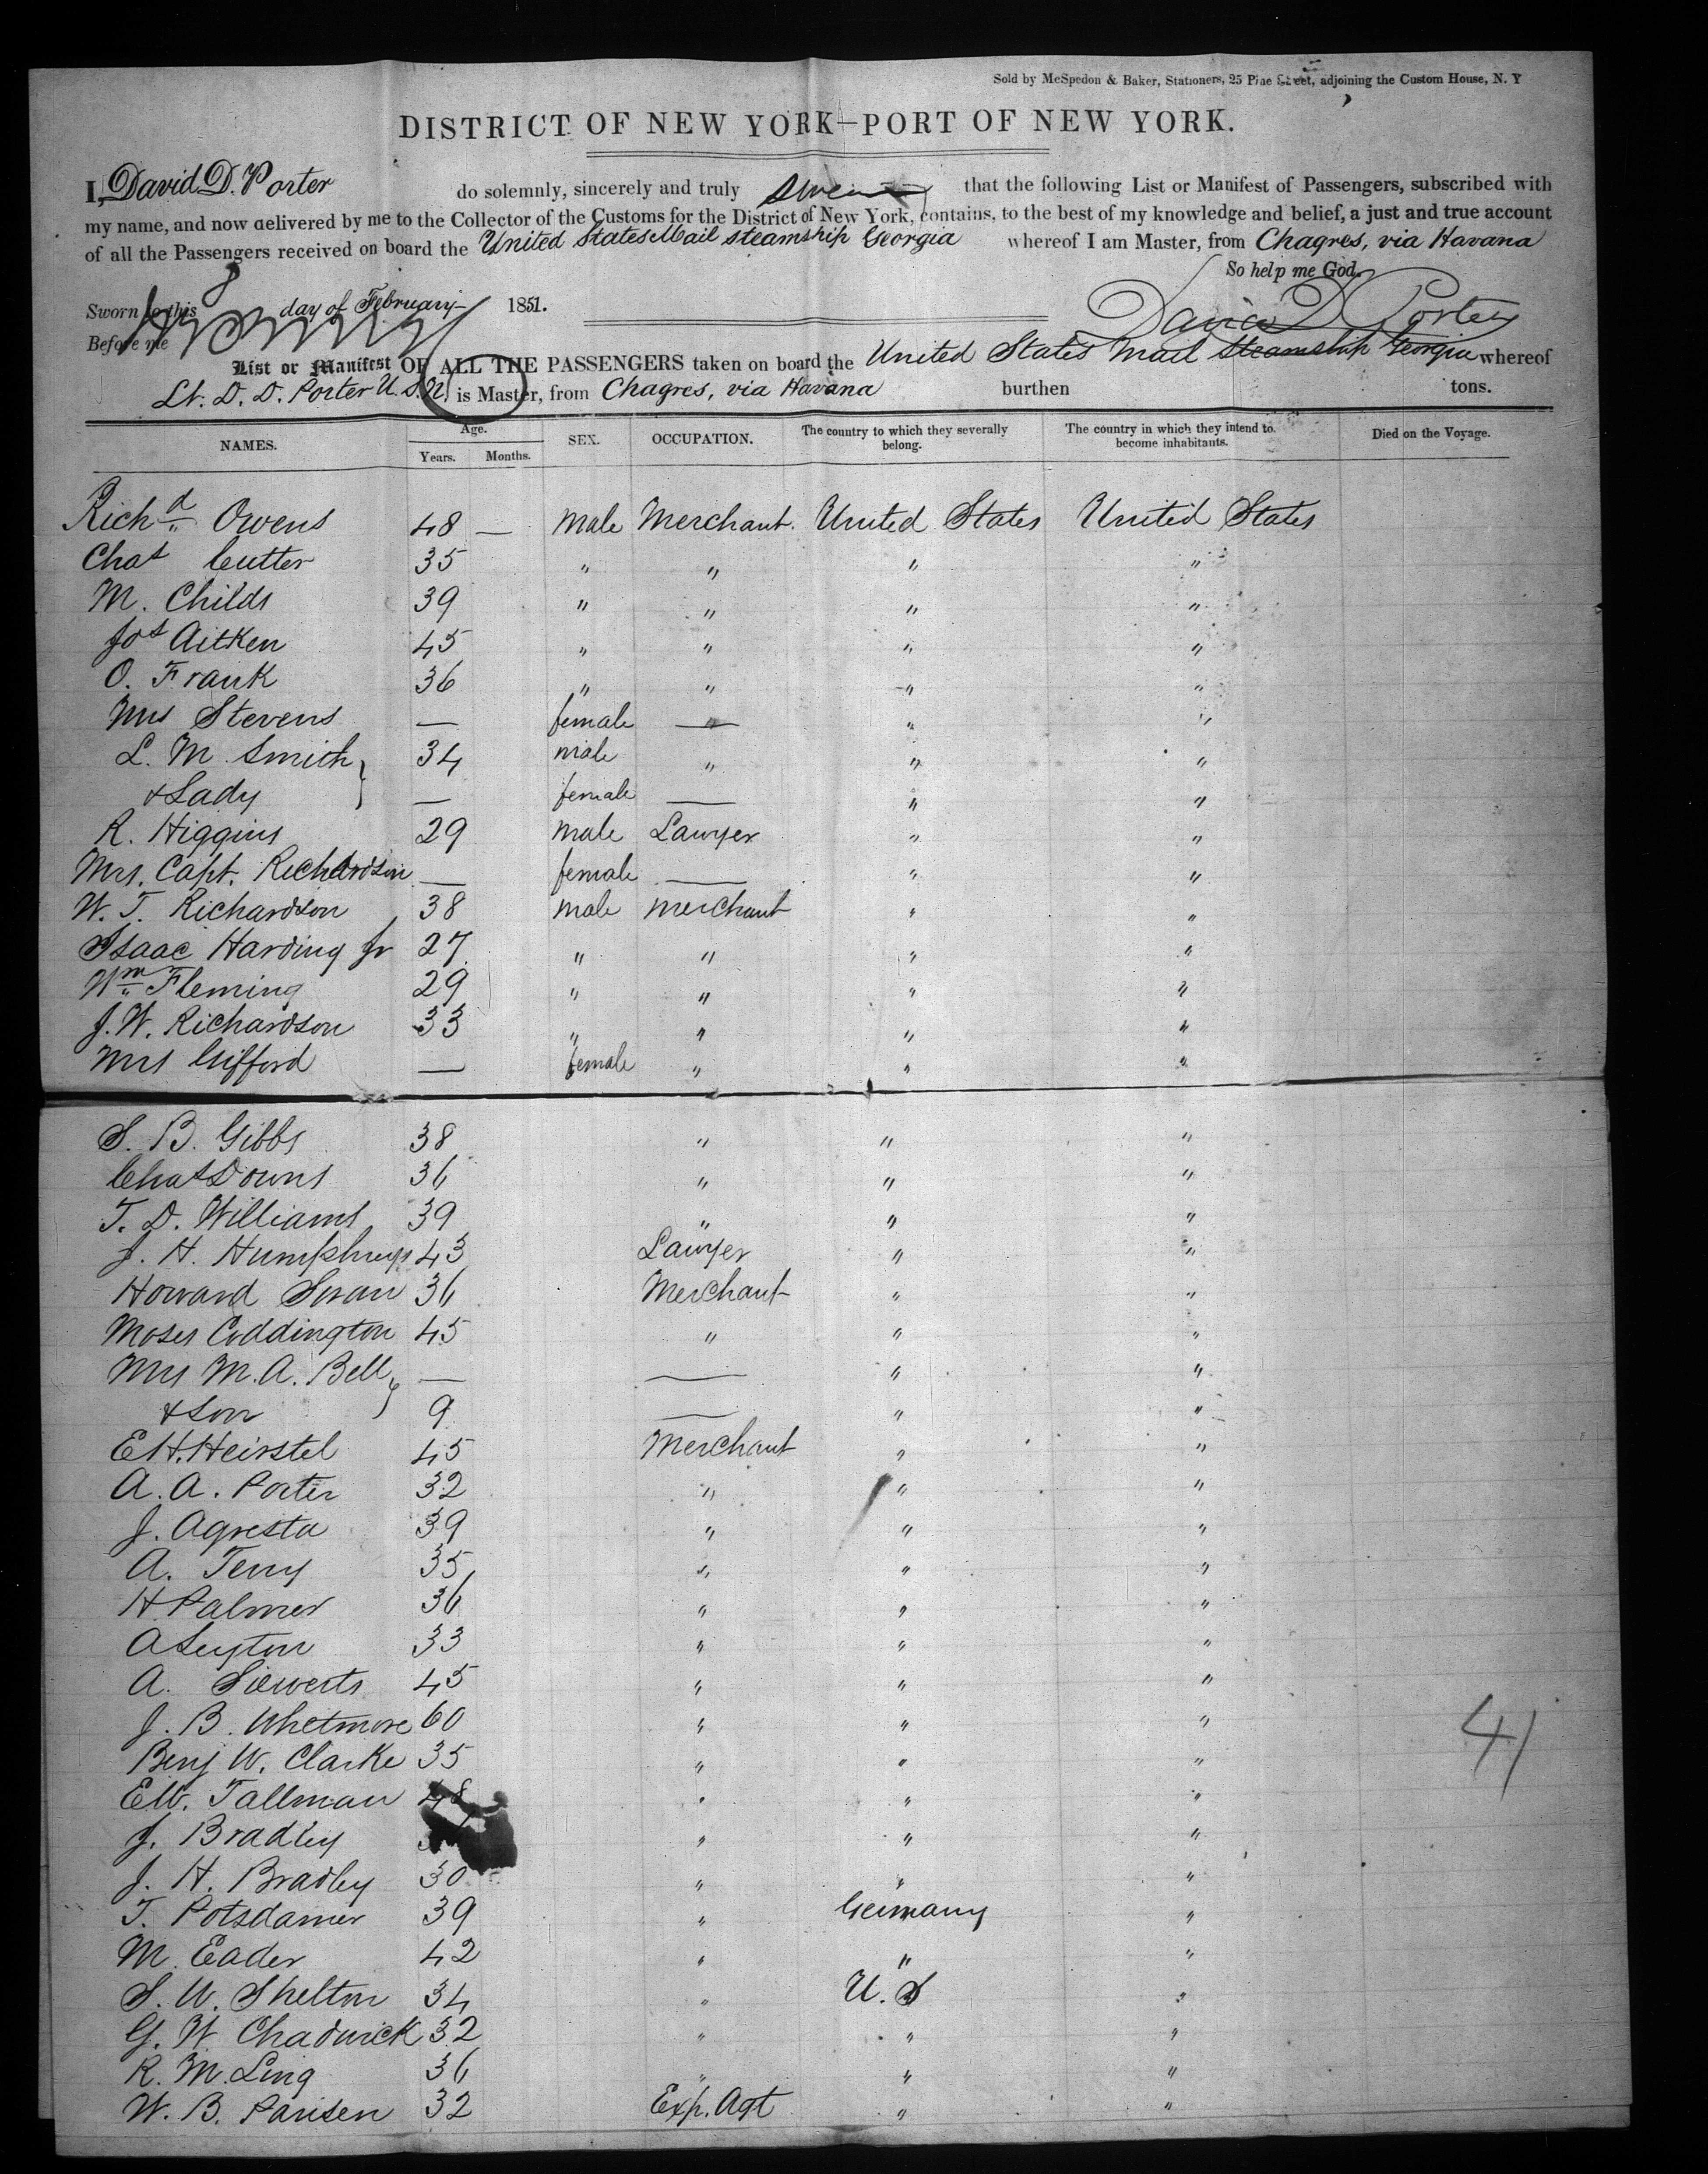 Sold by McSpedon & Baker, Stationers, 25 Pine Street, adjoining the Custom House, N. Y
DISTRICT OF NEW YORK—PORT OF NEW YORK.
I, David D. Porter do solemnly, sincerely and truly swear that the following List or Manifest of Passengers, subscribed with
my name, and now delivered by me to the Collector of the Customs for the District of New York, contains, to the best of my knowledge and belief, a just and true account
of all the Passengers received on board the United States Mail steamship Georgia whereof I am Master, from Chagres, via Havana
So help me God.
Sworn to this 8 day of February 1851. David D Porter
Before me
List or Manifest OF ALL THE PASSENGERS taken on board the United States Mail steamship Georgia whereof
Lt. D. D. Porter U.S.N. is Master, from Chagres, via Havana burthen tons.
NAMES. Age. Years. Months. SEX. OCCUPATION. The country to which they severally belong. The country in which they intend to become inhabitants. Died on the Voyage.
Richd Owens 48 — male Merchant. United States United States
Chas Cutter 35 " " " "
M. Childs 39 " " " "
Jos Aitken 45 " " " "
O. Frank 36 " " " "
Mrs Stevens — female — " "
L. M. Smith 34 male " " "
& Lady — female — " "
R. Higgins 29 male Lawyer " "
Mrs. Capt. Richardson — female — " "
W. T. Richardson 38 male merchant " "
Isaac Harding Jr 27 " " " "
Wm Fleming 29 " " " "
J. W. Richardson 33 " " " "
Mrs Gifford — female " " "
S. B. Gibbs 38 " " "
Chas Downs 36 " " "
T. D. Williams 39 " " "
J. H. Humphreys 43 Lawyer " "
Howard Swan 36 Merchant " "
Moses Coddington 45 " " "
Mrs M. A. Bell — — " "
& Son 9 — " "
E H. Heirstel 45 Merchant " "
A. A. Porter 32 " " "
J. Agresta 39 " " "
A. Terry 35 " " "
H Palmer 36 " " "
A 33 " " "
A. Siewerts 45 " " "
J. B. Whetmore 60 " " "
Benj W. Clarke 35 " " "
EW. Tallman 48 " " "
J. Bradley " " "
J. H. Bradley 30 " " "
T. Potsdamer 39 " Germany "
M. Eader 42 " " "
S. W. Shelton 34 " U. S "
G. W Chadwick 32 " " "
R. M. Ling 36 " " "
W. B. Parisen 32 Exp. Agt " "
41